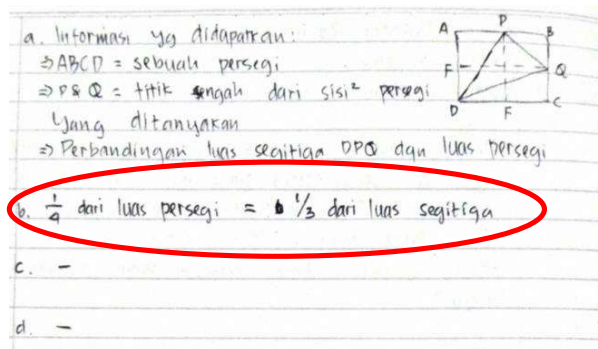 a. Informasi yg didapatkan:
⇒ABCD = sebuah persegi
⇒ P & Q = titik tengah dari sisi² persegi
Yang ditanyakan
⇒ Perbandingan luas segitiga DPQ dan luas persegi
b. 1/4 dari luas persegi = 1/3 dari luas segitiga
c. -
d. -
A P B
F Q
D F C